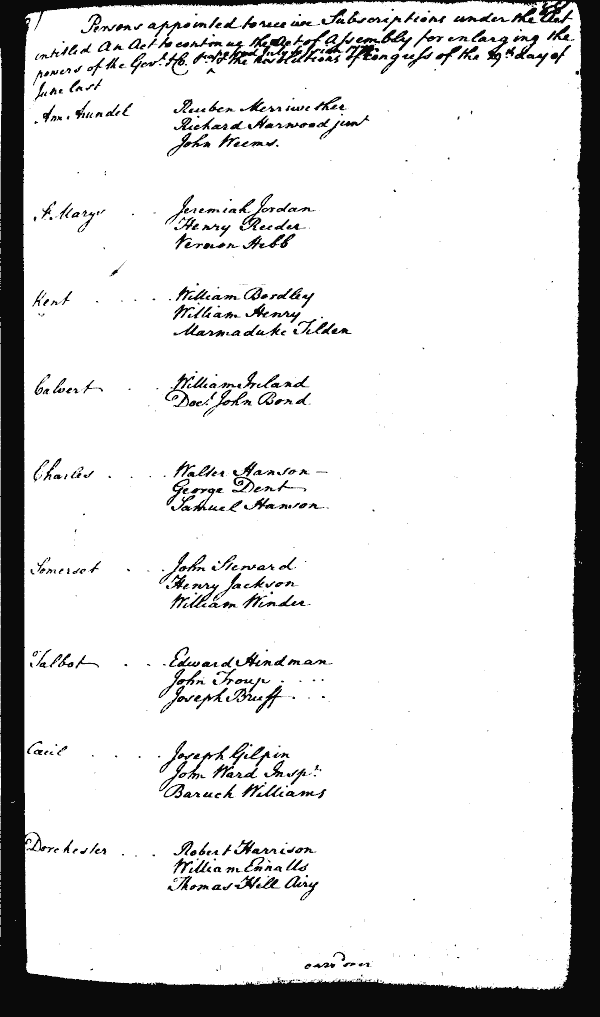 Persons appointed to receive Subscriptions under the Act
entitled An Act to continue the Act of Assembly for enlarging the
powers of the Govr. &c. to the resolutions of Congress of the 29th. day of
June last
Ann Arundel Reuben Merriwether
Richard Harwood junr
John Weems.
St. Marys Jeremiah Jordan
Henry Reeder
Vernon Hebb
Kent William Bordley
William Henry
Marmaduke Tilden
Calvert William Ireland
Doct. John Bond
Charles Walter Hanson
George Dent
Samuel Hanson
Somerset John Steward
Henry Jackson
William Winder
Talbot Edward Hindman
John Troup
Joseph Bruff
Cecil Joseph Gilpin
John Ward Inspr.
Baruch Williams
Dorchester Robert Harrison
William Ennalls
Thomas Hill Airy
carrd over